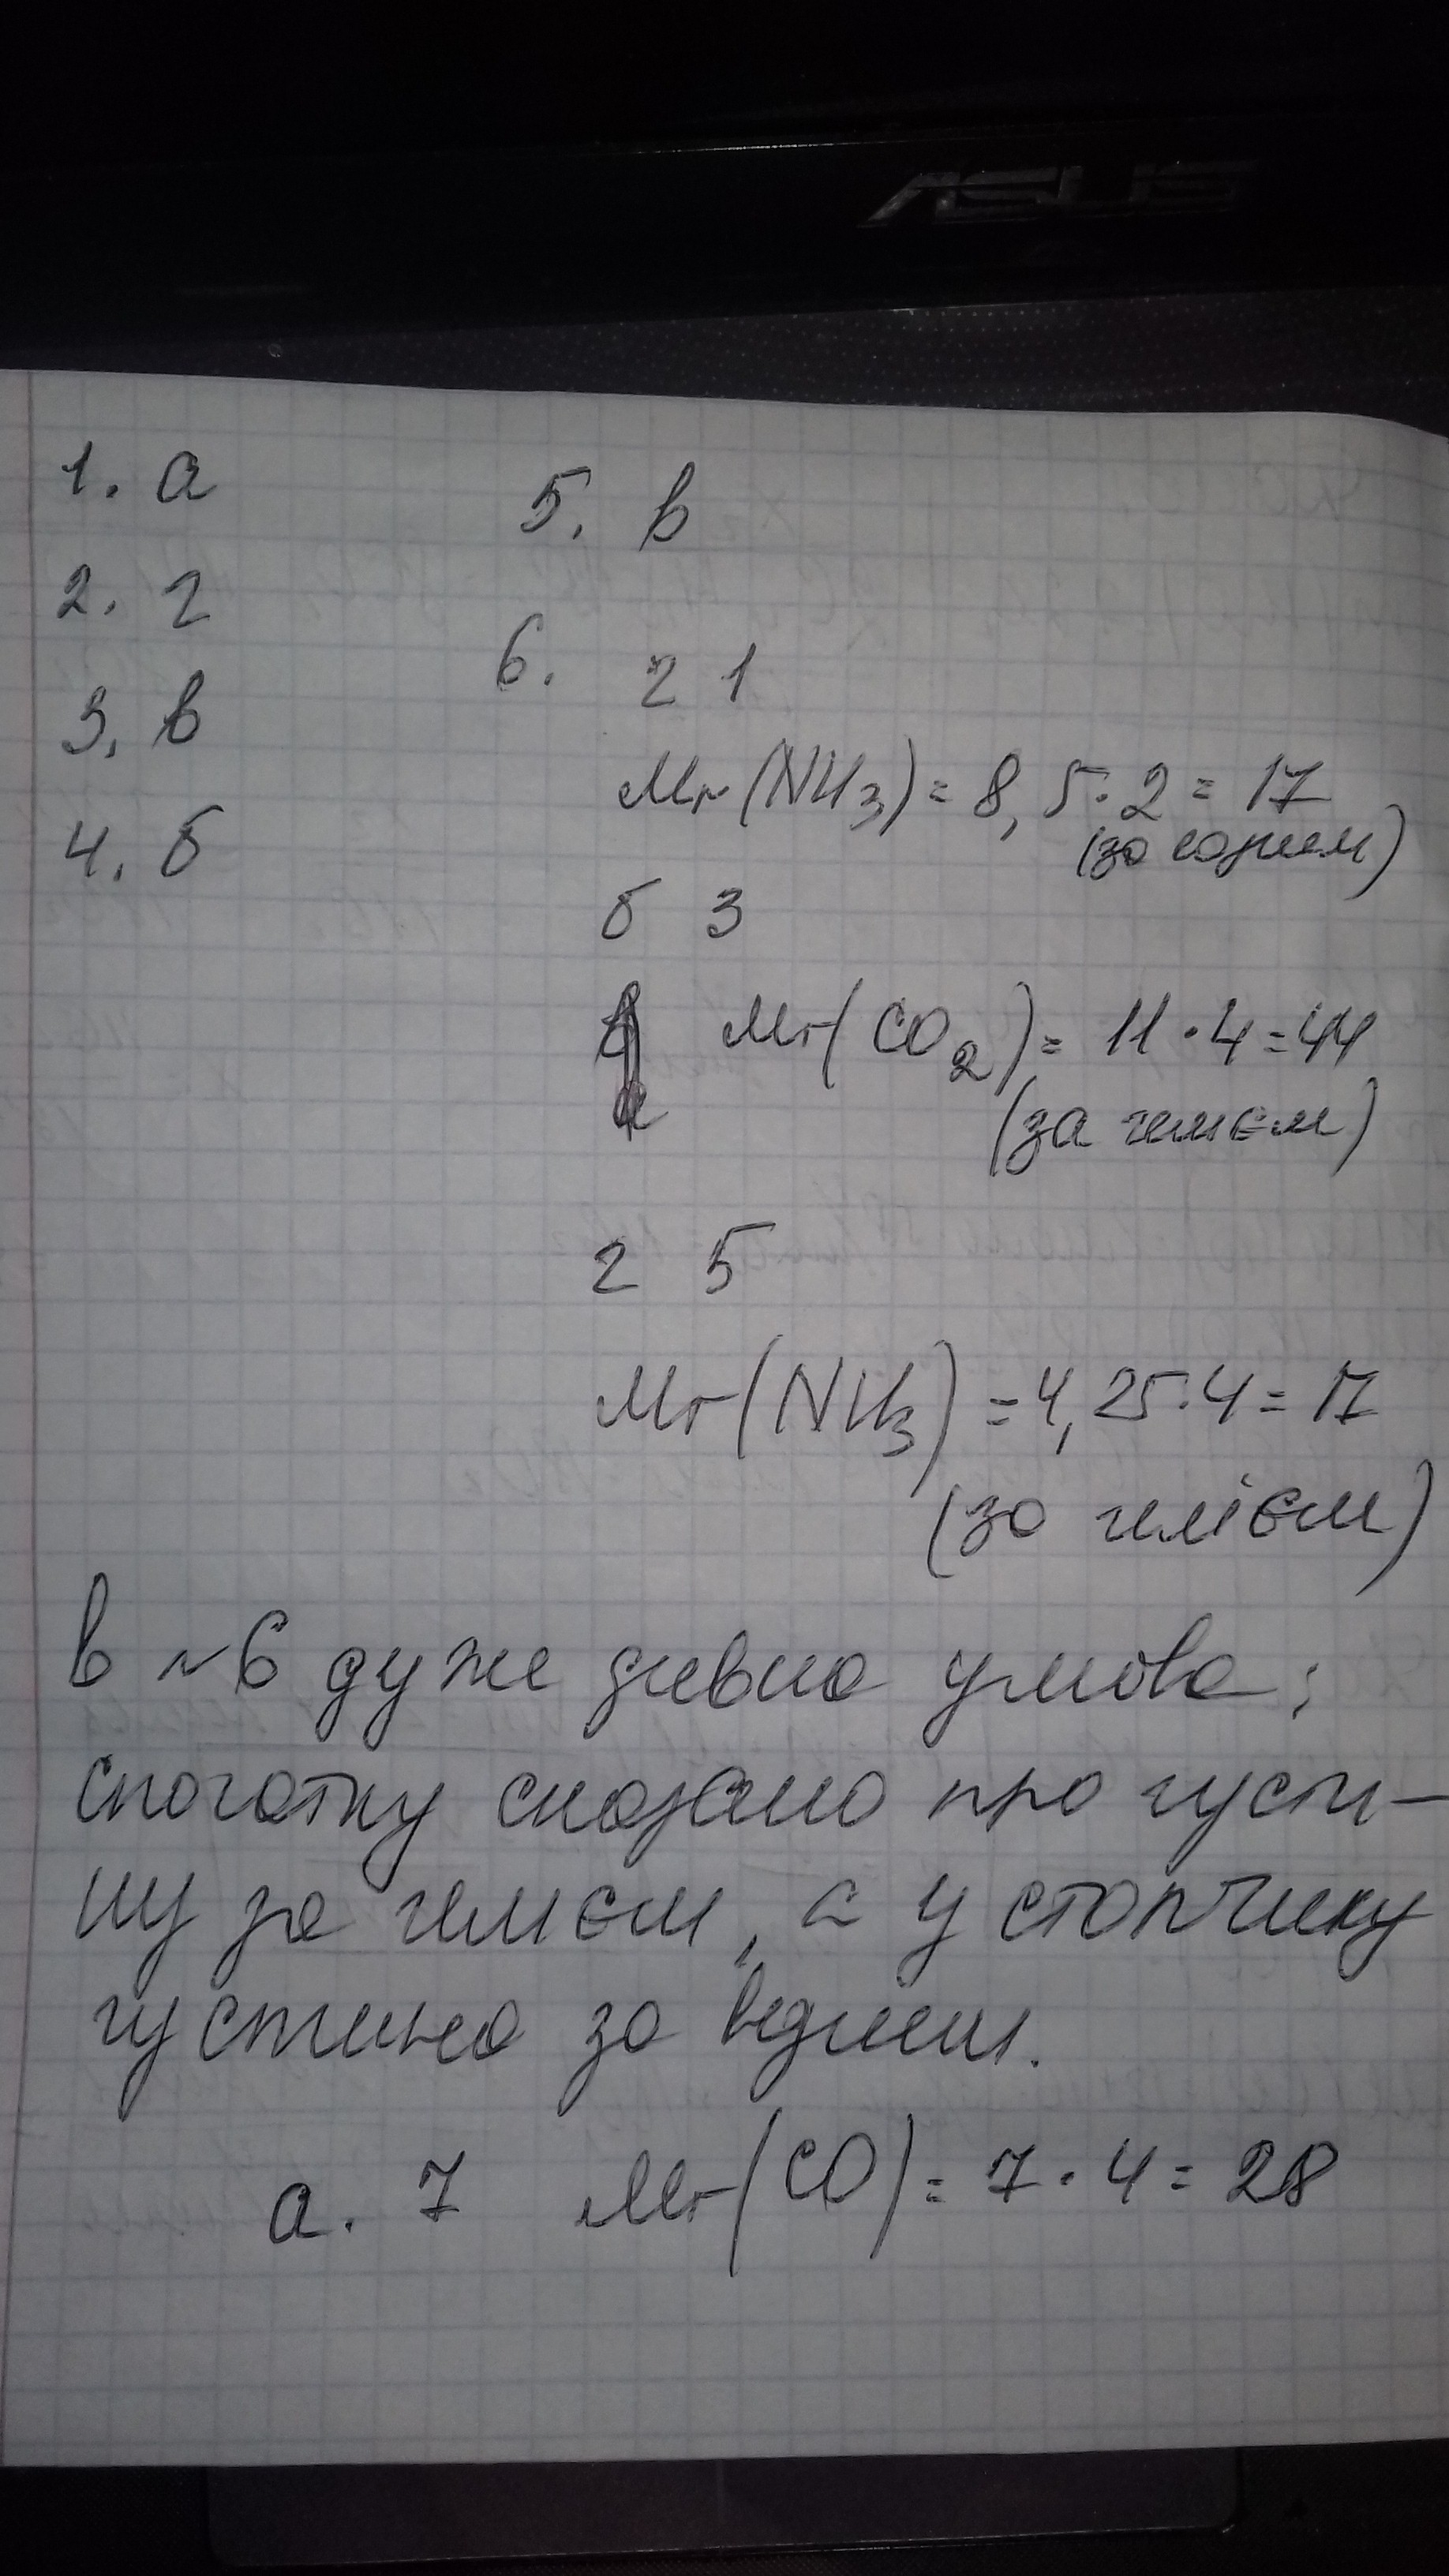 ASUS
1. а
2. г
3. в
4. б
5. в
6. г 1
Mr(NH3) = 8,5·2 = 17
(за воднем)
б 3
Mr(CO2) = 11·4 = 44
(за гелієм)
г 5
Mr(NH3) = 4,25·4 = 17
(за гелієм)
В №6 дуже дивна умова:
спочатку сказано про густи-
ну за гелієм, а у стопчику
густина за воднем.
а. 7 Mr(CO) = 7·4 = 28